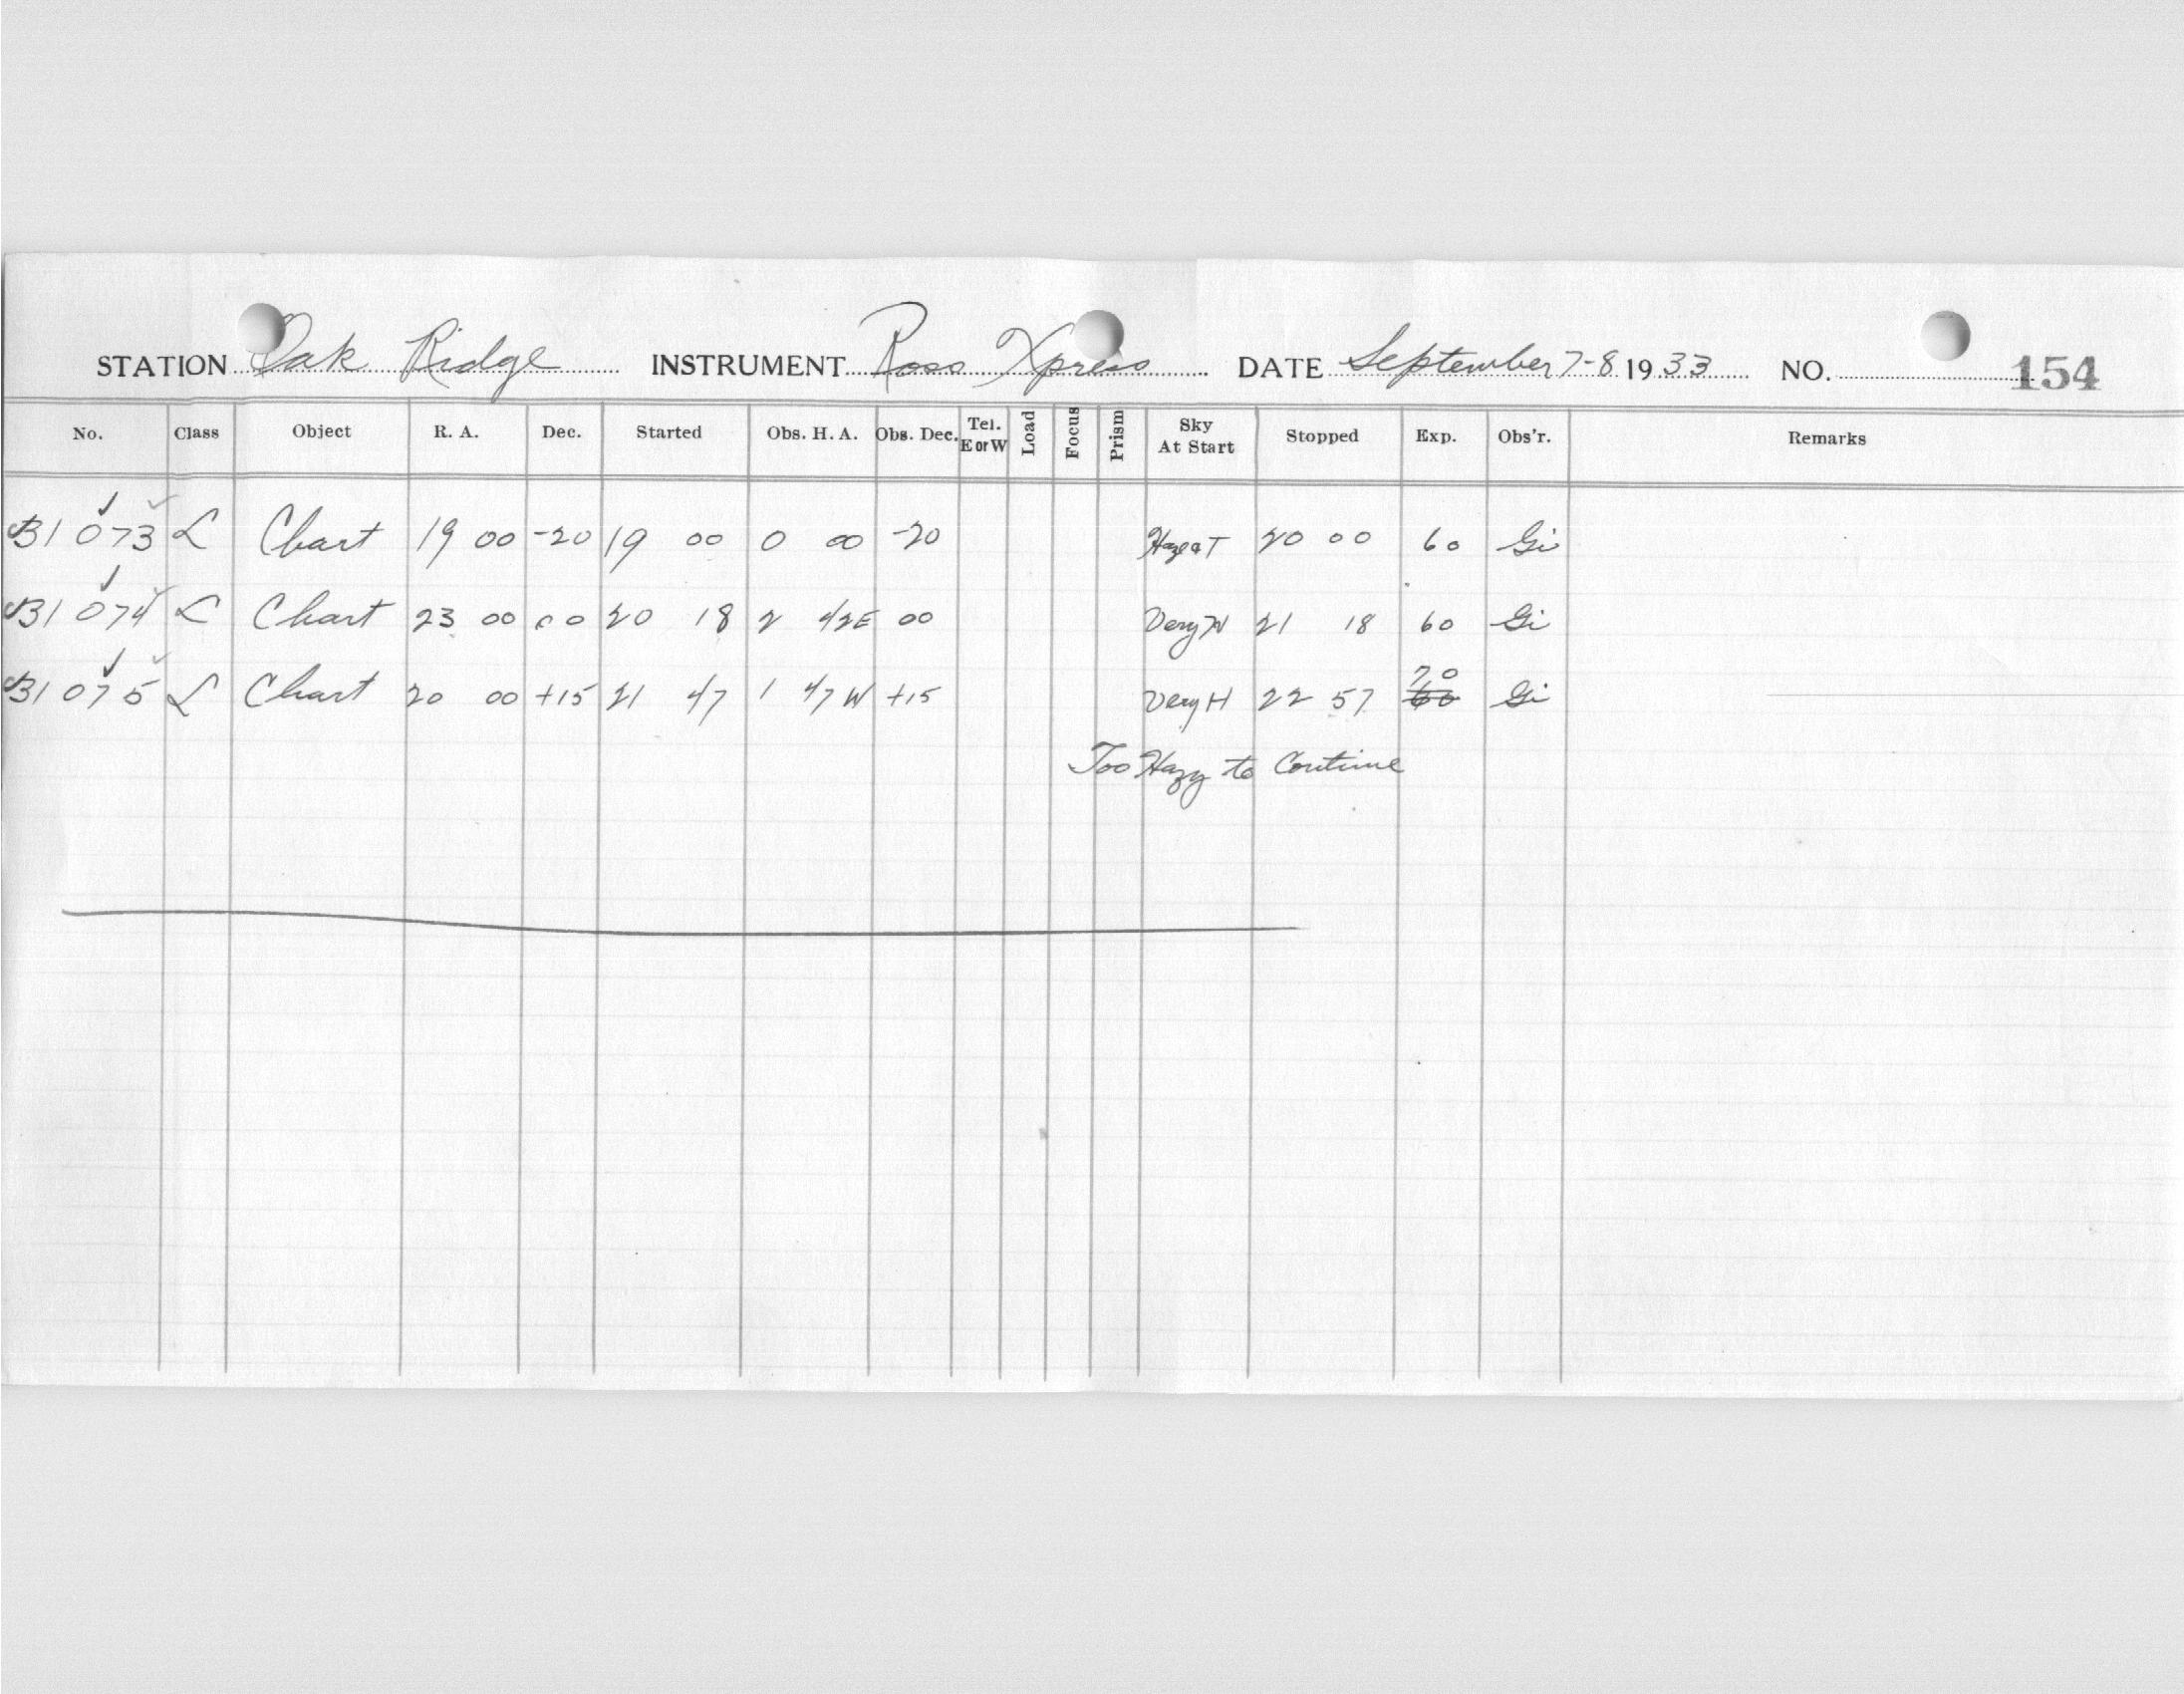 STATION Oak Ridge INSTRUMENT Ross Xpress DATE September 7-8 1933 NO. 154
No. Class Object R. A. Dec. Started Obs. H. A. Obs. Dec. Tel. E or W Load Focus Prism Sky At Start Stopped Exp. Obs'r. Remarks
31 073 L Chart 19 00 -20 19 00 0 00 -20 20 00 60 Gi
31 074 L Chart 23 00 00 20 18 2 42E 00 Very H 21 18 60 Gi
70
31 075 L Chart 20 00 +15 21 47 1 47 W +15 Very H 22 57 60 Gi
Too Hazy to Continue